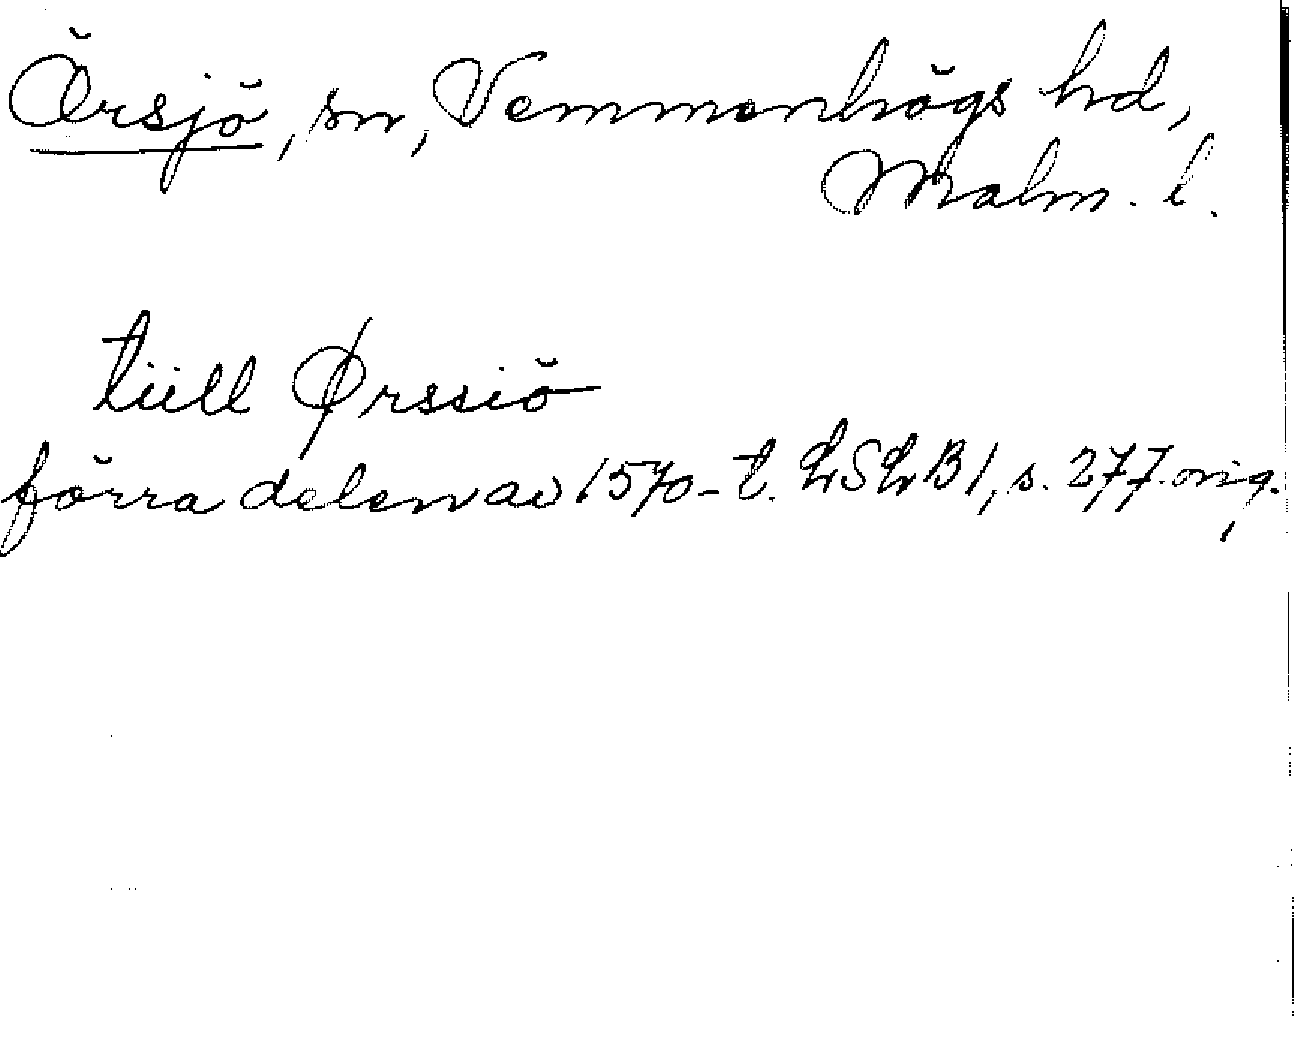 Örsjö, sn, Vemmenhögs hd,
Malm. l.
tiill Ørssiö
förra delen av 1570-t. LSLB1, s. 277. orig.